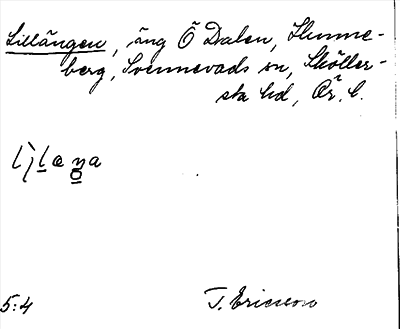 Lillängen, äng Ö Dalen, Humme-
berg, Svennevads sn, Sköller-
sta hd, Ör. l.
5:4 T. Ericsson